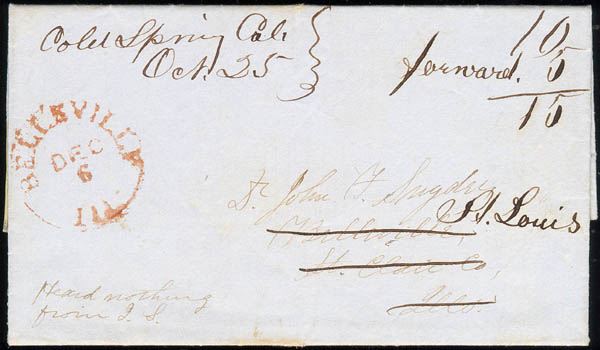 Cold Spring Cal.
Oct. 25
forward.
10
5
15
BELLEVILLE
DEC
6
Ill.
Dr. John F. Snyder
Belleville,
St. Clair Co,
Ills.
St. Louis
Heard nothing
from J. S.